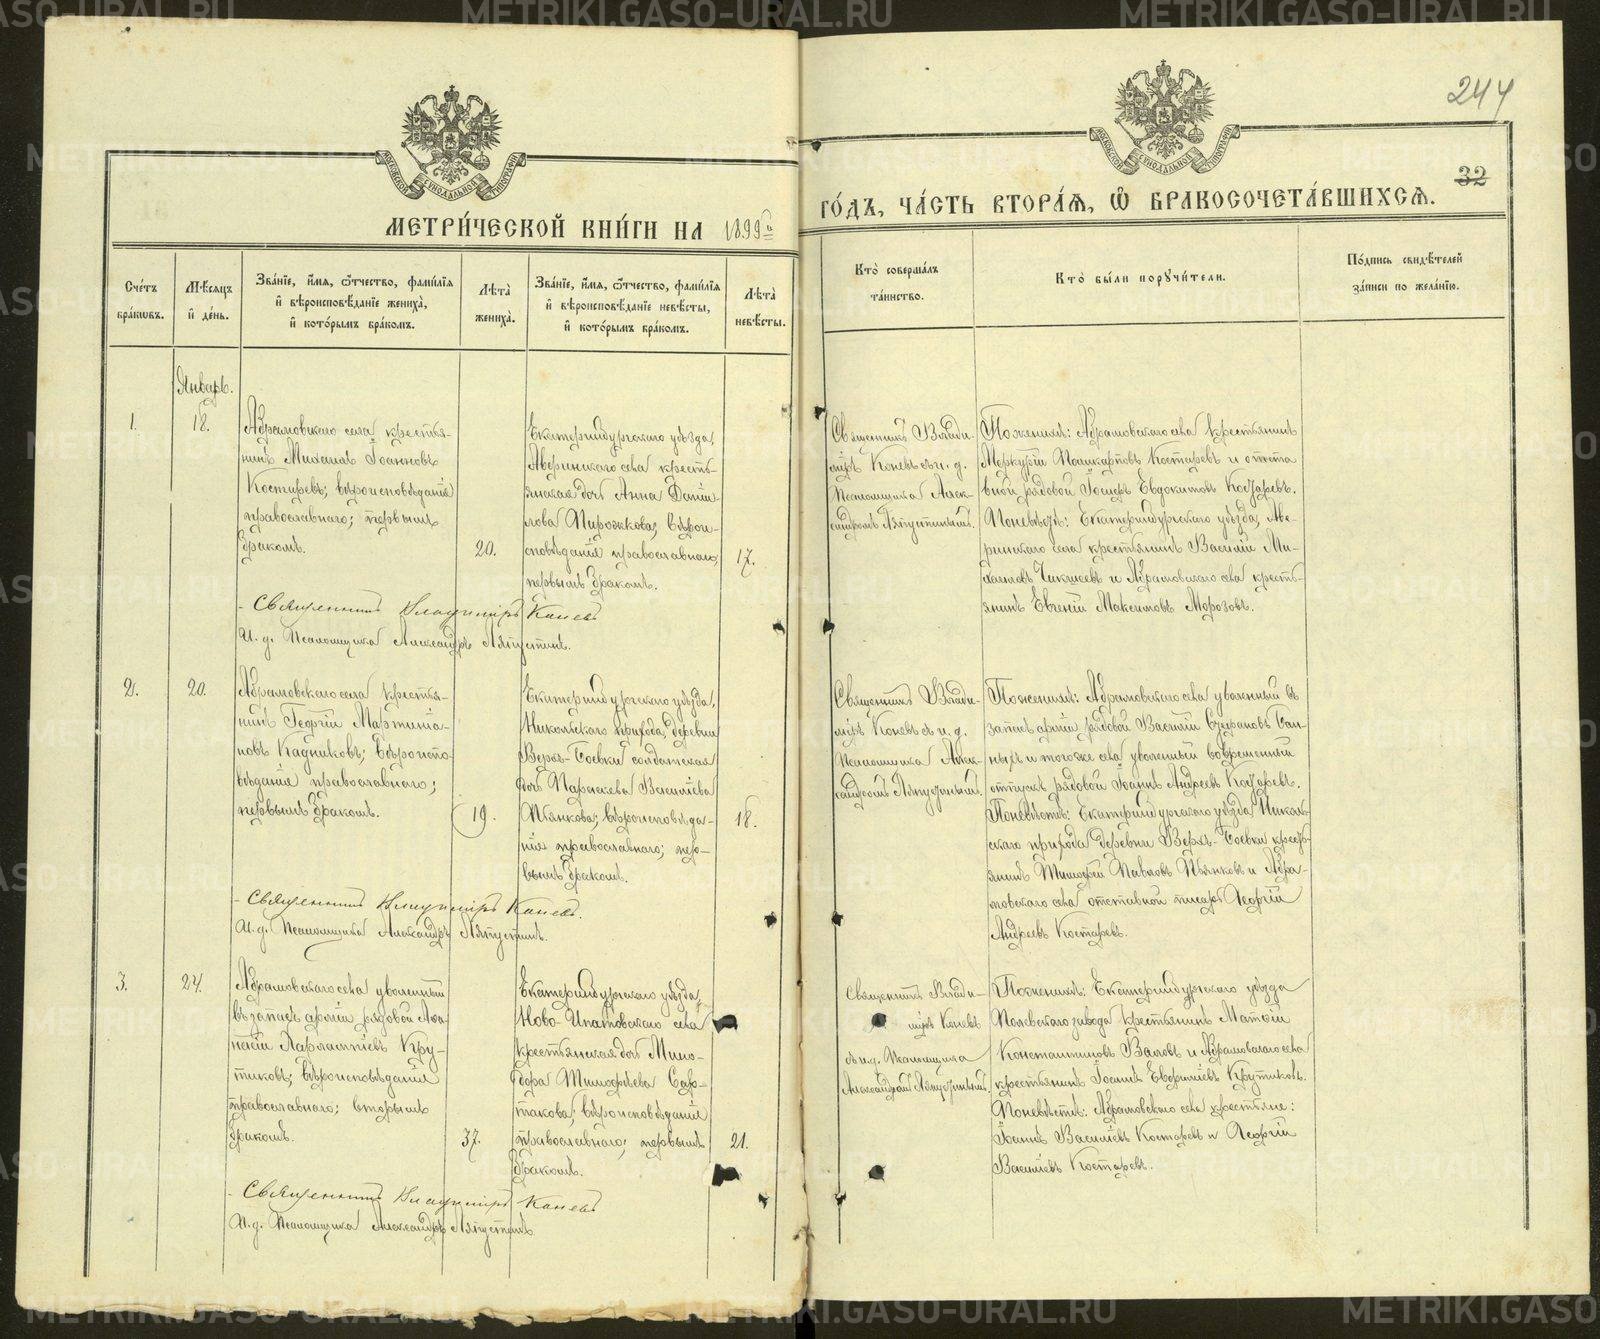 METRIKI.GASO-URAL.RU
244
32
МОСКОВСКОЙ СѴНОДАЛЬНОЙ ТИПОГРАФІИ
МЕТРИ́ЧЕСКОЙ КНИ́ГИ НА 1899й
ГО́ДЪ, ЧА́СТЬ ВТОРА́Ѧ, Ѽ БРАКОСОЧЕТА́ВШИХСѦ.
Сче́тъ бра́кѡвъ.
Мѣ́сѧцъ и҆ де́нь.
Зва́нїе, и҆́мѧ, ѻ҆́тчество, фами́лїѧ
и҆ вѣроисповѣ́данїе жениха̀,
и҆ кото́рымъ бра́комъ.
Лѣта̀ жениха̀.
Зва́нїе, и҆́мѧ, ѻ҆́тчество, фами́лїѧ
и҆ вѣроисповѣ́данїе невѣ́сты,
и҆ кото́рымъ бра́комъ.
Лѣта̀ невѣ́сты.
Кто̀ соверша́лъ
та́инство.
Кто̀ бы́ли порꙋчи́тели.
По́дпись свидѣ́телей
за́писи по жела́нїю.
Январь.
1.
18.
Абрамовскаго села крестья-
нинъ Михаилъ Іоанновъ
Костаревъ; вѣроисповѣданія
православнаго; первымъ
бракомъ.
20.
Екатеринбургскаго уѣзда,
Аверинскаго села кресть-
янская дочь Анна Даніи-
лова Пирожкова; вѣрои-
сповѣданія православнаго,
первымъ бракомъ.
17.
Священникъ Влади-
міръ Коневъ съ и. д.
Псаломщика Алек-
сандромъ Ляпустинымъ.
По женихѣ: Абрамовскаго села крестьянинъ
Меркурій Костаревъ и отста
вной рядовой Евдокимовъ Кочаревъ.
По невѣстѣ: Екатеринбургскаго уѣзда, Аве-
ринскаго села крестьянинъ Василій Ми-
хаиловъ и Абрамовскаго села кресть-
янинъ Евгеній Максимовъ Морозовъ.
Священникъ Владиміръ Коневъ
И. д. Псаломщика Александръ Ляпустинъ.
2.
20.
Абрамовскаго села крестья-
нинъ Георгій Мартиніа-
новъ Кадниковъ; вѣроиспо-
вѣданія православнаго;
первымъ бракомъ.
19.
Екатеринбургскаго уѣзда,
Никольскаго прихода, деревни
Верхъ-Боевки солдатская
дочь Параскева Васильева
Пьянкова; вѣроисповѣда-
нія православнаго; пер-
вымъ бракомъ.
18.
Священникъ Влади-
міръ Коневъ съ и. д.
Псаломщика Алек-
сандромъ Ляпустинымъ.
По женихѣ: Абрамовскаго села уволенный въ
запасъ арміи рядовой Василій Стефановъ Бан-
ныхъ и того же села уволенный во временный
отпускъ рядовой Іоаннъ Андреевъ Кочаревъ.
По невѣстѣ: Екатеринбургскаго уѣзда Николь-
скаго прихода деревни Верхъ-Боевки кресть-
янинъ Тимофей Павловъ Пьянковъ и Абра-
мовскаго села отставной писарь Георгій
Андреевъ Костаревъ.
Священникъ Владиміръ Коневъ.
И. д. Псаломщика Александръ Ляпустинъ.
3.
24.
Абрамовскаго села уволенный
въ запасъ арміи рядовой Аѳа-
насій Харлампіевъ Кру-
тиковъ; вѣроисповѣданія
православнаго; вторымъ
бракомъ.
37.
Екатеринбургскаго уѣзда,
Ново-Ипатовскаго села
крестьянская дочь Мино-
дора Тимофеева Сар-
такова, вѣроисповѣданія
православнаго; первымъ
бракомъ.
21.
Священникъ Влади-
міръ Коневъ
съ и. д. Псаломщика
Александромъ Ляпустинымъ.
По женихѣ: Екатеринбургскаго уѣзда
Полевскаго завода крестьянинъ Матѳій
Константиновъ Валовъ и Абрамовскаго села
крестьянинъ Іоаннъ Крутиковъ.
По невѣстѣ: Абрамовскаго села крестьяне:
Іоаннъ Васильевъ Костаревъ и Георгій
Васильевъ Костаревъ.
Священникъ Владиміръ Коневъ
И. д. Псаломщика Александръ Ляпустинъ.